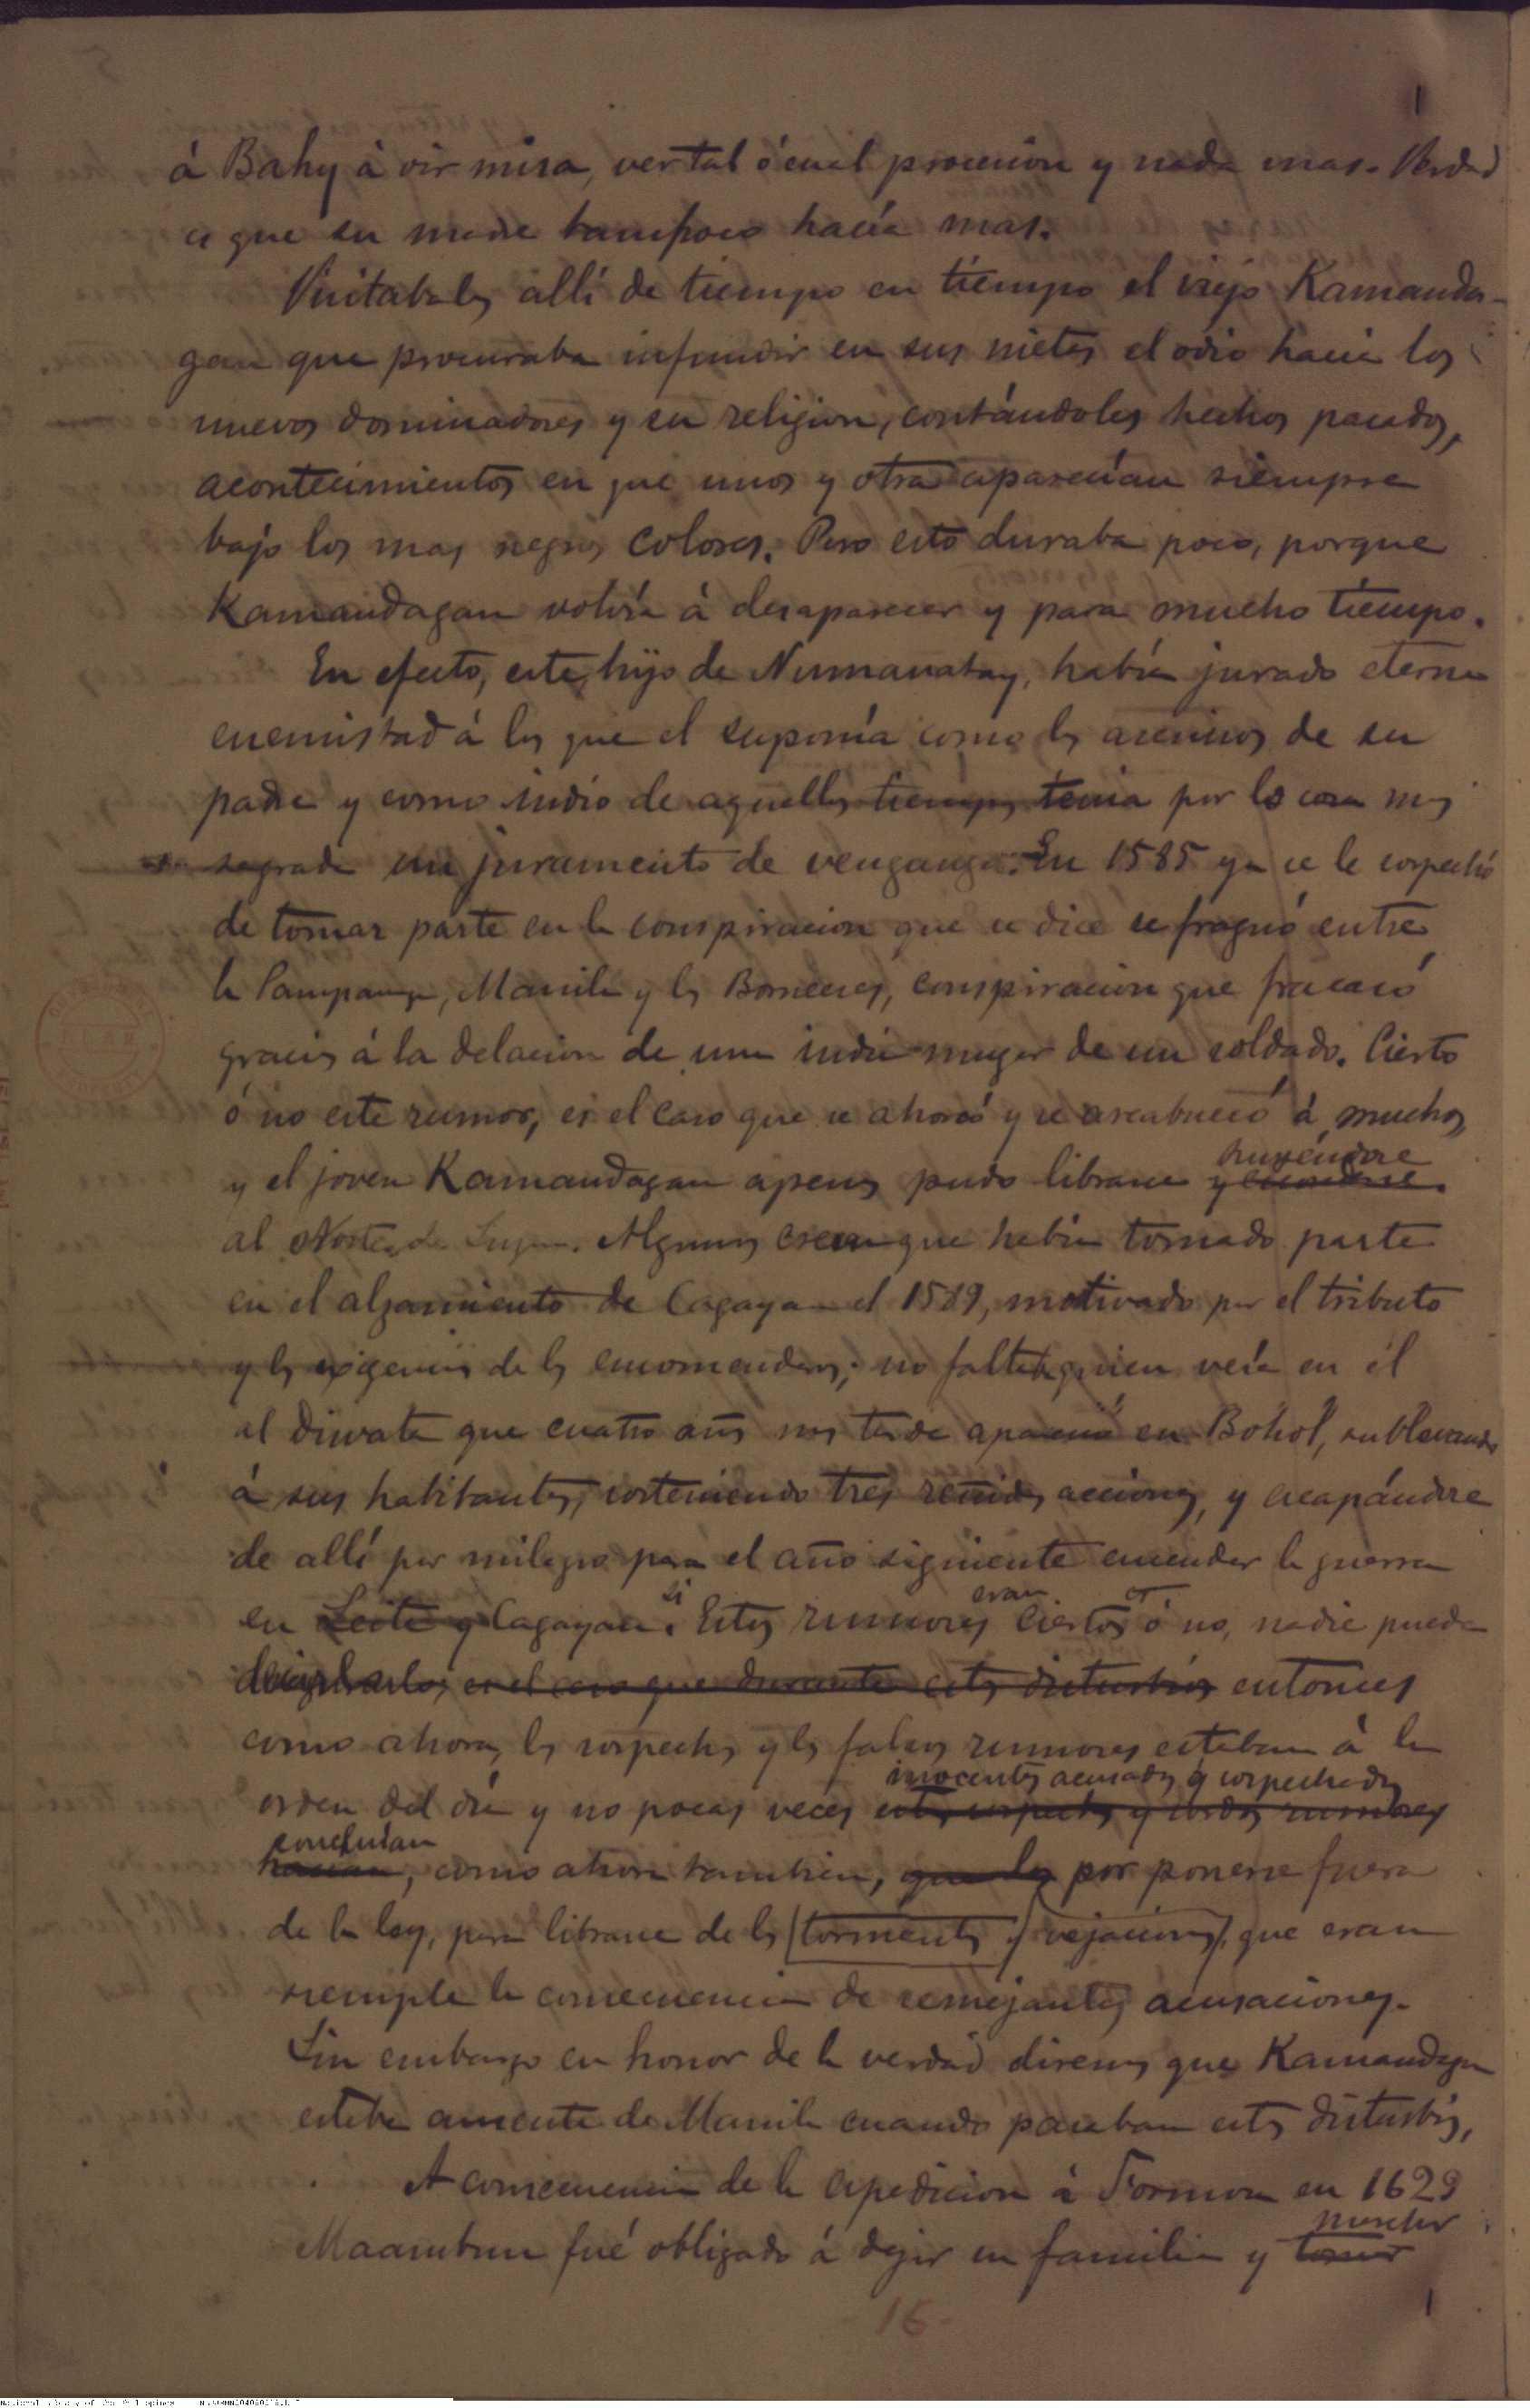 à Bahy à oir misa, ver tal ó cual procesion y nada mas. Verdad
es que su madre tampoco hacía mas.
Visitabales allí de tiempo en tiempo el viejo Kamanda-
gan que procuraba infundir en sus nietos el odio hacia los
nuevos dominadores y su religion, contándoles hechos pasados,
acontecimientos en que unos y otra aparecían siempre
bajo los mas negros colores. Pero esto duraba poco, porque
Kamandagan volvía à desaparecer y para mucho tiempo.
En efecto, este hijo de Numanatay, había jurado eterna
enemistad á los que el suponía como los asesinos de su
padre y como indio de aquellos tiempos tenia por la cosa mas
sagrada un juramento de venganza. En 1585 ya se le sospechó
de tomar parte en la conspiracion que se dice se fraguó entre
la Pampanga, Manila y los Borneos, conspiracion que fracasó
gracias á la delacion de una india muger de un soldado. Cierto
ó no este rumor, es el caso que se ahorcó y se arcabuceó à muchos
y el joven Kamandagan apenas pudo librarse huyéndose
al Norte de Luzon. Algunos creen que habia tomado parte
en el alzamiento de Cagayan el 1589, motivado por el tributo
y las exigencias de los encomenderos; no faltaba quien veía en él
al diwata que cuatro años mas tarde apareció en Bohol, sublevando
á sus habitantes, sosteniendo tres reñidas acciones, y escapándose
de allí por milagro para el año siguiente encender la guerra
en Leite y Cagayan. Si Estos rumores eran ciertos ó no, nadie puede
es el caso que durante estos disturbios entonces
como ahora, las sospechas y los falsos rumores estaban à la
inocentes acusados y sospechados
orden del dia y no pocas veces estas sospechas y estos rumores
concluían
hacian, como ahora tambien, que los por ponerse fuera
de la ley, para librarse de los tormentos y vejaciones, que eran
siempre la consecuencia de semejantes acusaciones.
Sin embargo en honor de la verdad diremos que Kamandagan
estaba ausente de Manila cuando pasaban estos disturbios,
A consecuencia de la espedicion à Formosa en 1629
marchar
Maambun fué obligado á dejar su familia y tomar
16